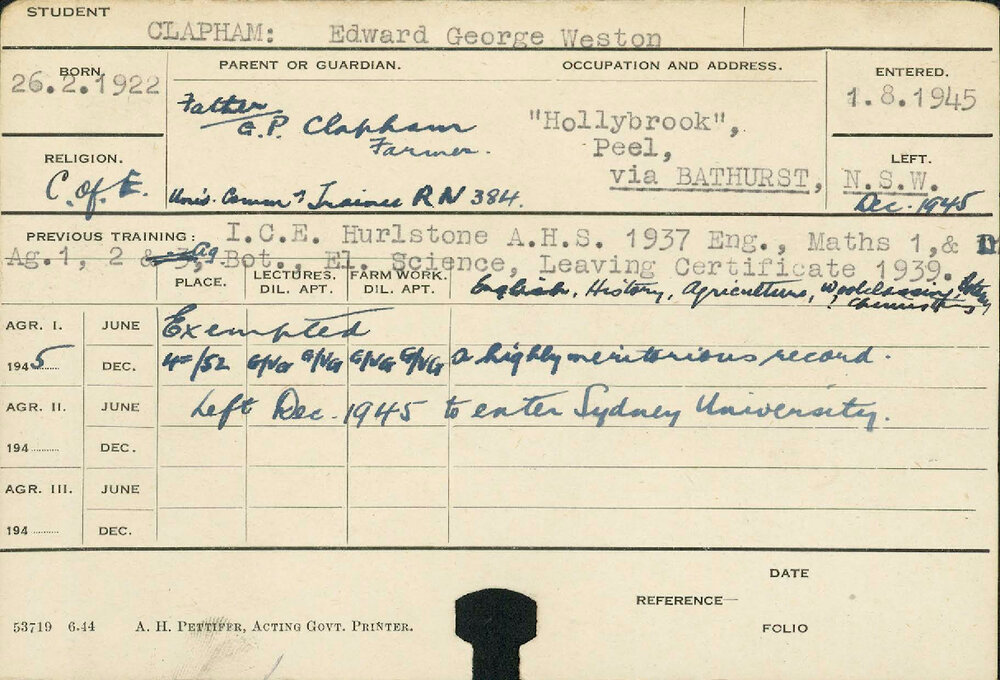 STUDENT
CLAPHAM: Edward George Weston
BORN.
26.2.1922
PARENT OR GUARDIAN.
OCCUPATION AND ADDRESS.
ENTERED.
1.8.1945
Father
G.P. Clapham
Farmer.
"Hollybrook",
Peel,
via BATHURST, N.S.W.
RELIGION.
C. of E.
LEFT.
Dec. 1945
Univ. Comm Trainee RN 384.
PREVIOUS TRAINING: I.C.E. Hurlstone A.H.S. 1937 Eng., Maths 1,&
Ag.1, 2 & 3, Ag. Bot., El. Science, Leaving Certificate 1939.
English, History, Agriculture, Botany
Chemistry
PLACE.
LECTURES.
DIL. APT.
FARM WORK.
DIL. APT.
AGR. I. JUNE Exempted
1945 DEC. 4=/52 G/VG G/VG G/VG G/VG A highly meritorious record.
AGR. II. JUNE Left Dec. 1945 to enter Sydney University.
194 DEC.
AGR. III. JUNE
194 DEC.
DATE
REFERENCE
FOLIO
53719 6.44 A. H. PETTIFER, ACTING GOVT. PRINTER.